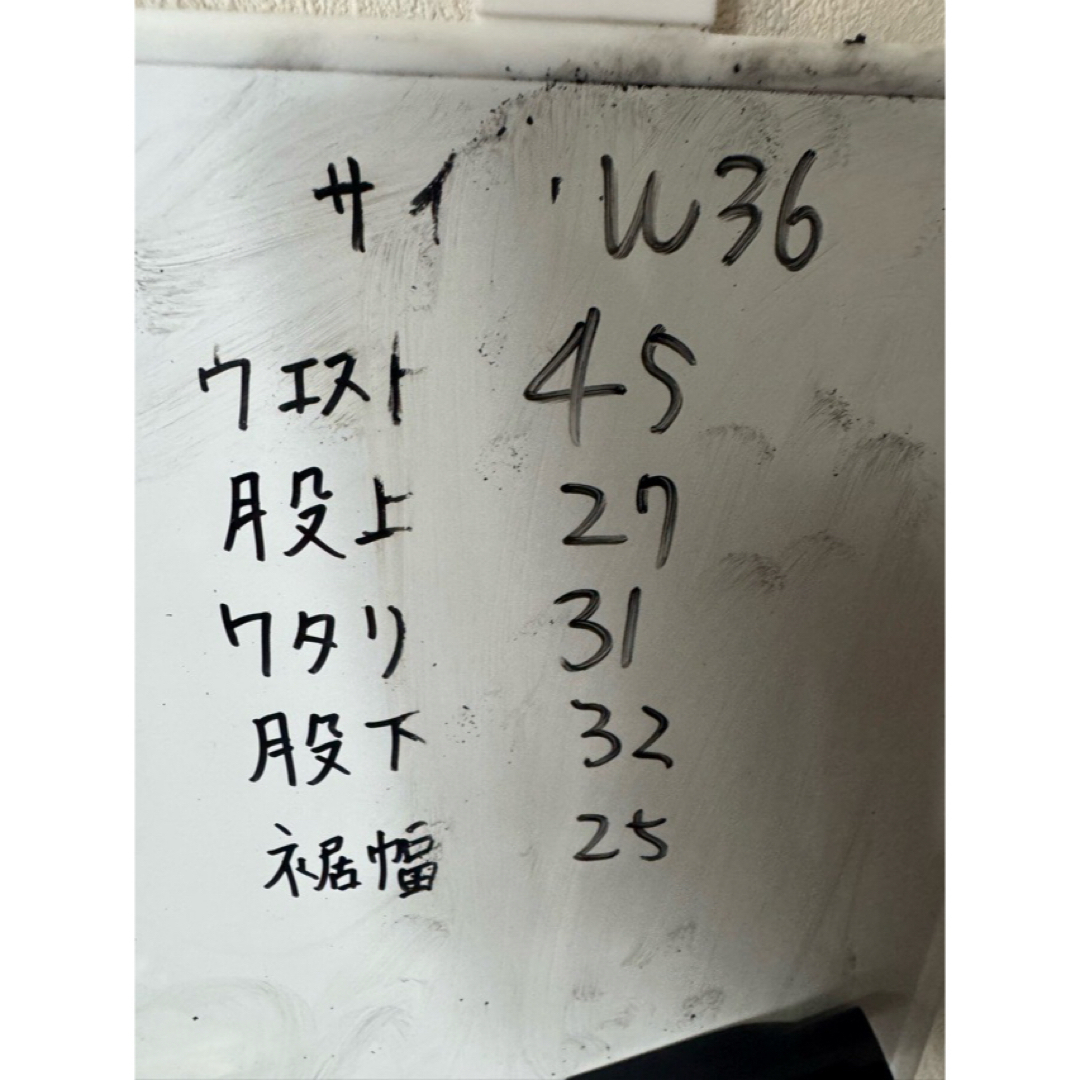 サイ W36
ウエスト 45
股上 27
ワタリ 31
股下 32
裾幅 25